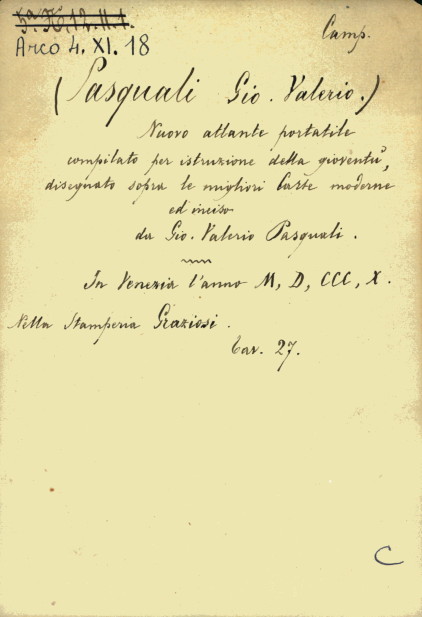 5ª. K. 12. II. 1.
Arco 4. XI. 18
Camp.
(Pasquali Gio. Valerio.)
Nuovo atlante portatile
compilato per istruzione della gioventù,
disegnato sopra le migliori Carte moderne
ed inciso
da Gio. Valerio Pasquali.
In Venezia l'anno M, D, CCC, X.
Nella Stamperia Graziosi.
Tav. 27.
C